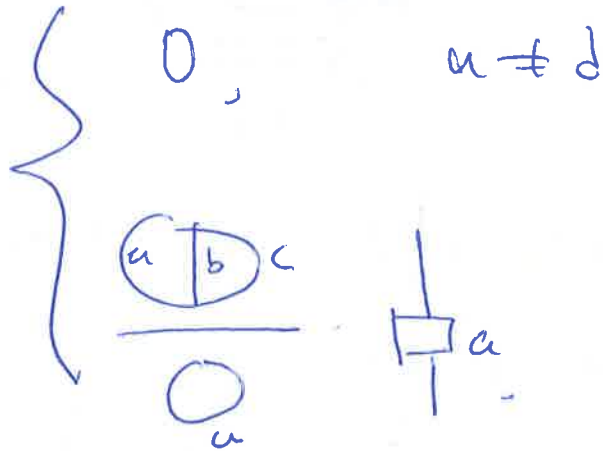 0, a ≠ d
a b c
a
a